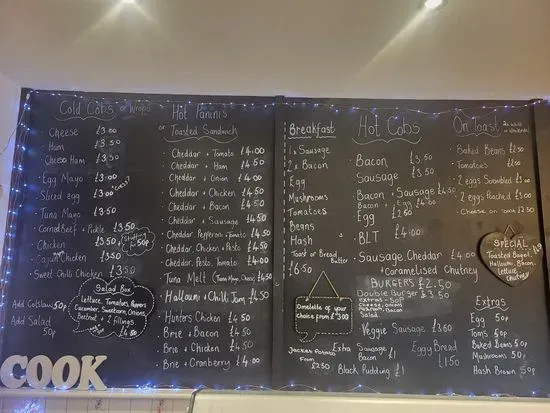 Cold Cobs or Wraps
Cheese £3.00
Ham £3.50
Cheese Ham £3.50
Egg Mayo £3.00
Sliced egg £3.00
Tuna Mayo £3.50
Corned Beef + Pickle £3.50
Chicken £3.50
Stuffing 50p
Cajun Chicken £3.50
Sweet Chilli Chicken £3.50
Add Coleslaw 50p
Add Salad 50p
Salad Box
Lettuce, Tomatoes, Peppers
Cucumber, Sweetcorn, Onions
Beetroot + 2 Fillings
£4.50
COOK
Hot Paninis
or Toasted Sandwich
Cheddar + Tomato £4.00
Cheddar + Ham £4.50
Cheddar + Onion £4.00
Cheddar + Chicken £4.50
Cheddar + Bacon £4.50
Cheddar + Sausage £4.50
Cheddar, Pepperoni + Tomato £4.50
Cheddar, Chicken, + Pesto £4.50
Cheddar, Pesto, Tomato £4.00
Tuna Melt (Tuna, Mayo, Cheese) £4.50
Halloumi + Chilli Jam £4.50
Hunters Chicken £4.50
Brie + Bacon £4.50
Brie + Chicken £4.50
Brie + Cranberry £4.00
Breakfast
1 x Sausage
2 x Bacon
Egg
Mushrooms
Tomatoes
Beans
Hash
Toast or Bread
Butter
£6.50
Omelette of your
choice from £3.00
Jacket Potato
From £2.50
Hot Cobs
Bacon £3.50
Sausage £3.50
Bacon + Sausage £4.50
Bacon + Egg £4.00
Egg £2.50
BLT £4.00
Sausage Cheddar £4.00
+ Caramelised Chutney
BURGERS £2.50
Double Burger £3.50
extras - 50p
Cheese, onion
Bacon
Salad
Veggie Sausage £3.60
Extra Sausage £1
Bacon
Eggy Bread £1.50
Black Pudding £1
On Toast
Baked Beans £2.50
Tomatoes £2.50
2 eggs Scrambled £3.00
2 eggs Poached £3.00
Cheese on toast £2.50
SPECIAL
Toasted Bagel,
Halloumi, Bacon,
lettuce,
Chutney
Extras
Egg 50p
Toms 50p
Baked Beans 50p
Mushrooms 50p
Hash Brown 50p